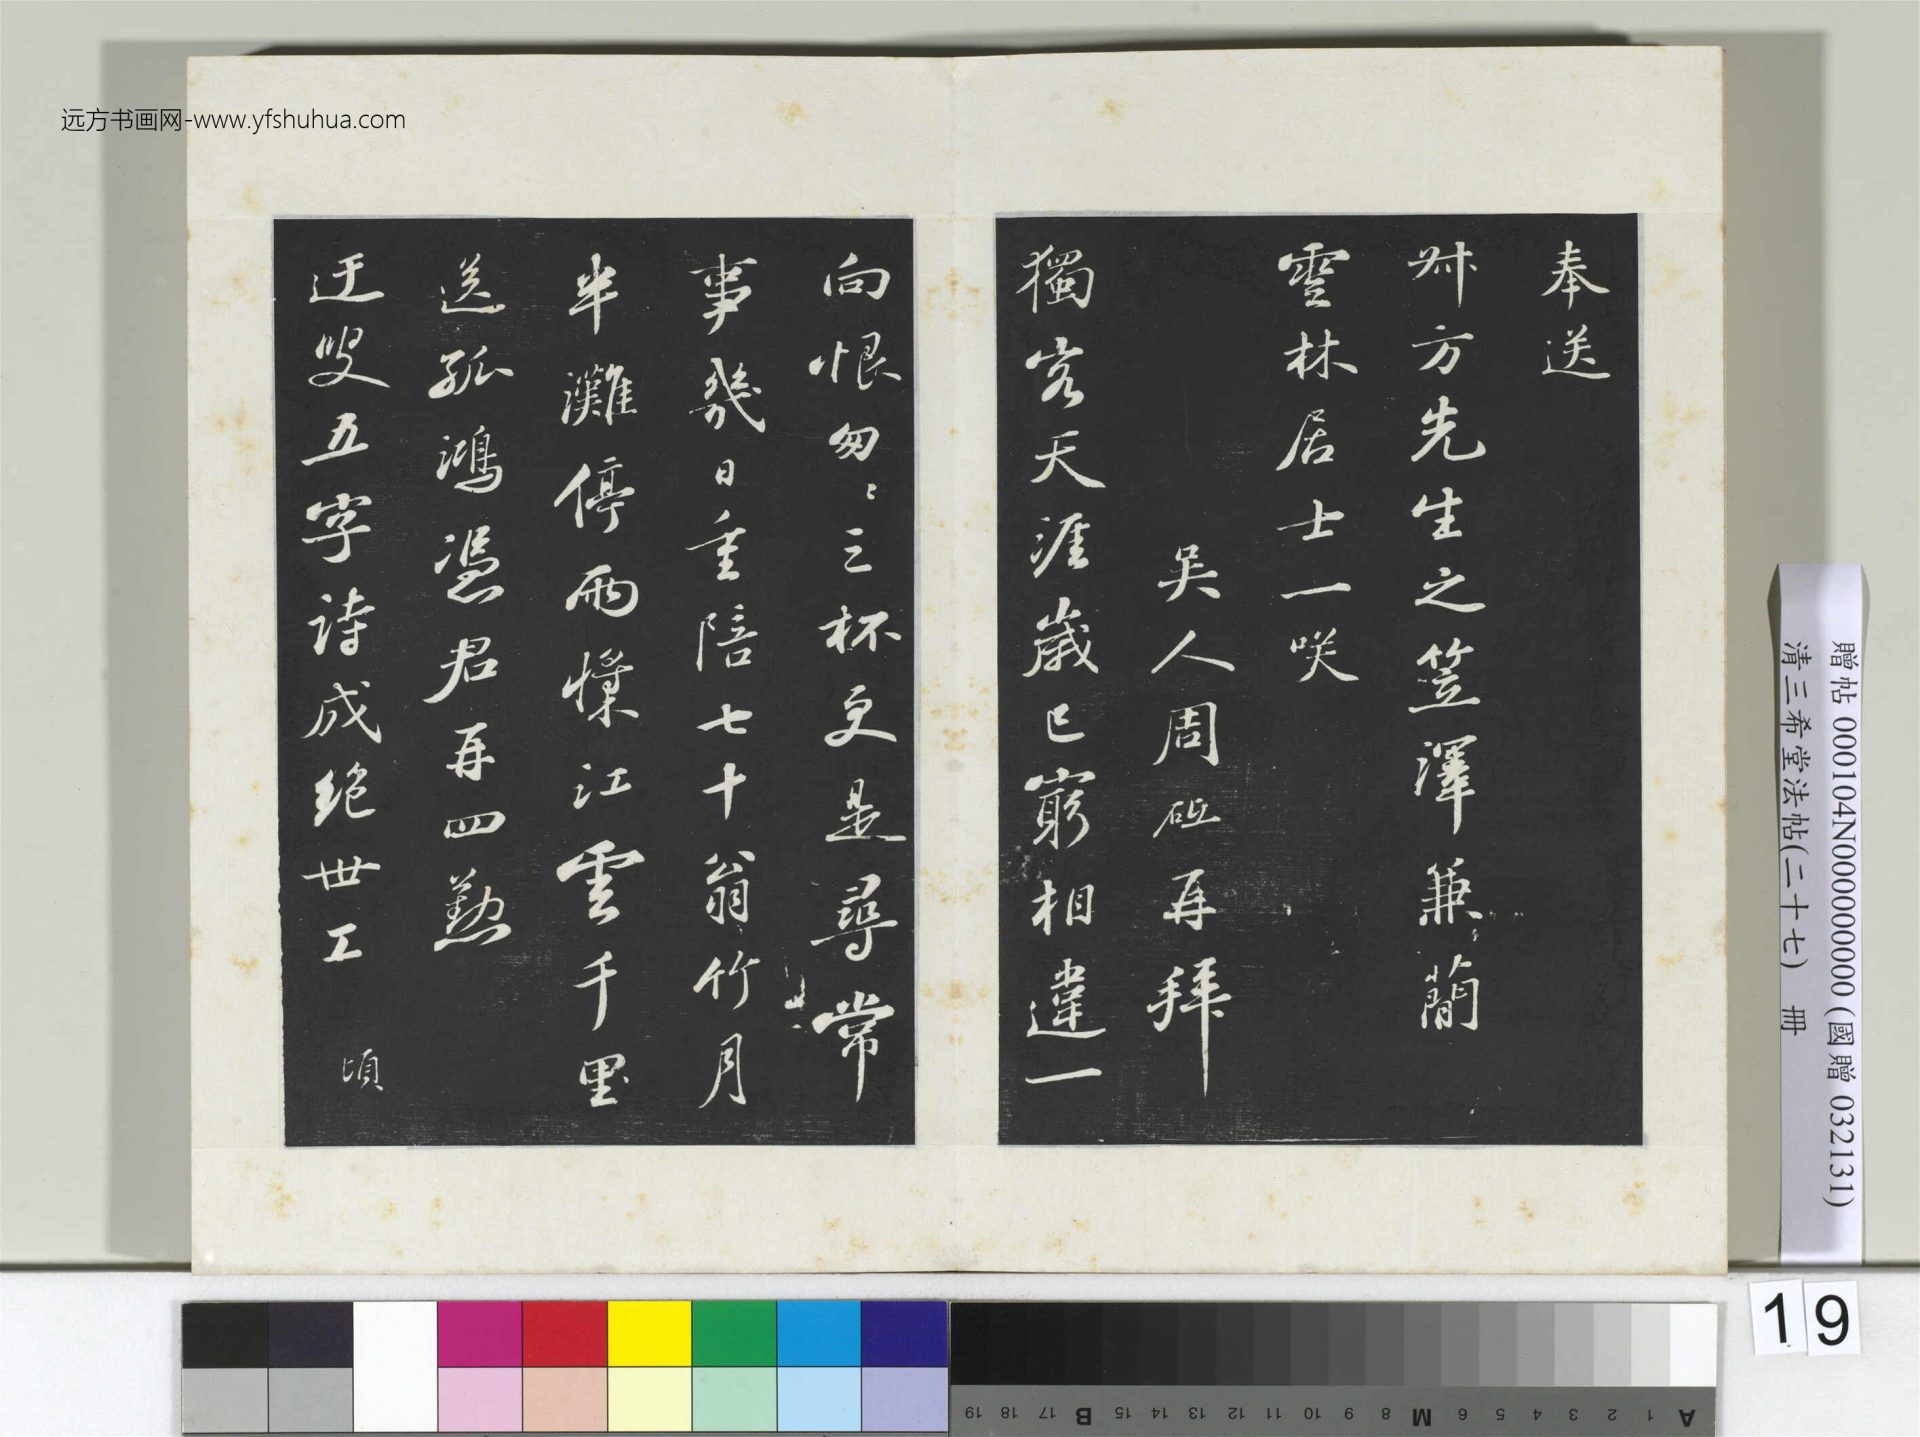 奉送
叔方先生之笠澤兼簡
雲林居士一咲
吳人周砥再拜
獨客天涯歲已窮相違一
向恨匆〻三杯更是尋常
事幾日重陪七十翁竹月
半灘停雨槳江雲千里
送孤鴻憑君再四懃
迂叟五字詩成絕世工 頃
远方书画网-www.yfshuhua.com
贈帖 000104N000000000 (國贈 032131)
清三希堂法帖(二十七) 冊
19
A 1 2 3 4 5 6 M 8 9 10 11 12 13 14 15 B 17 18 19